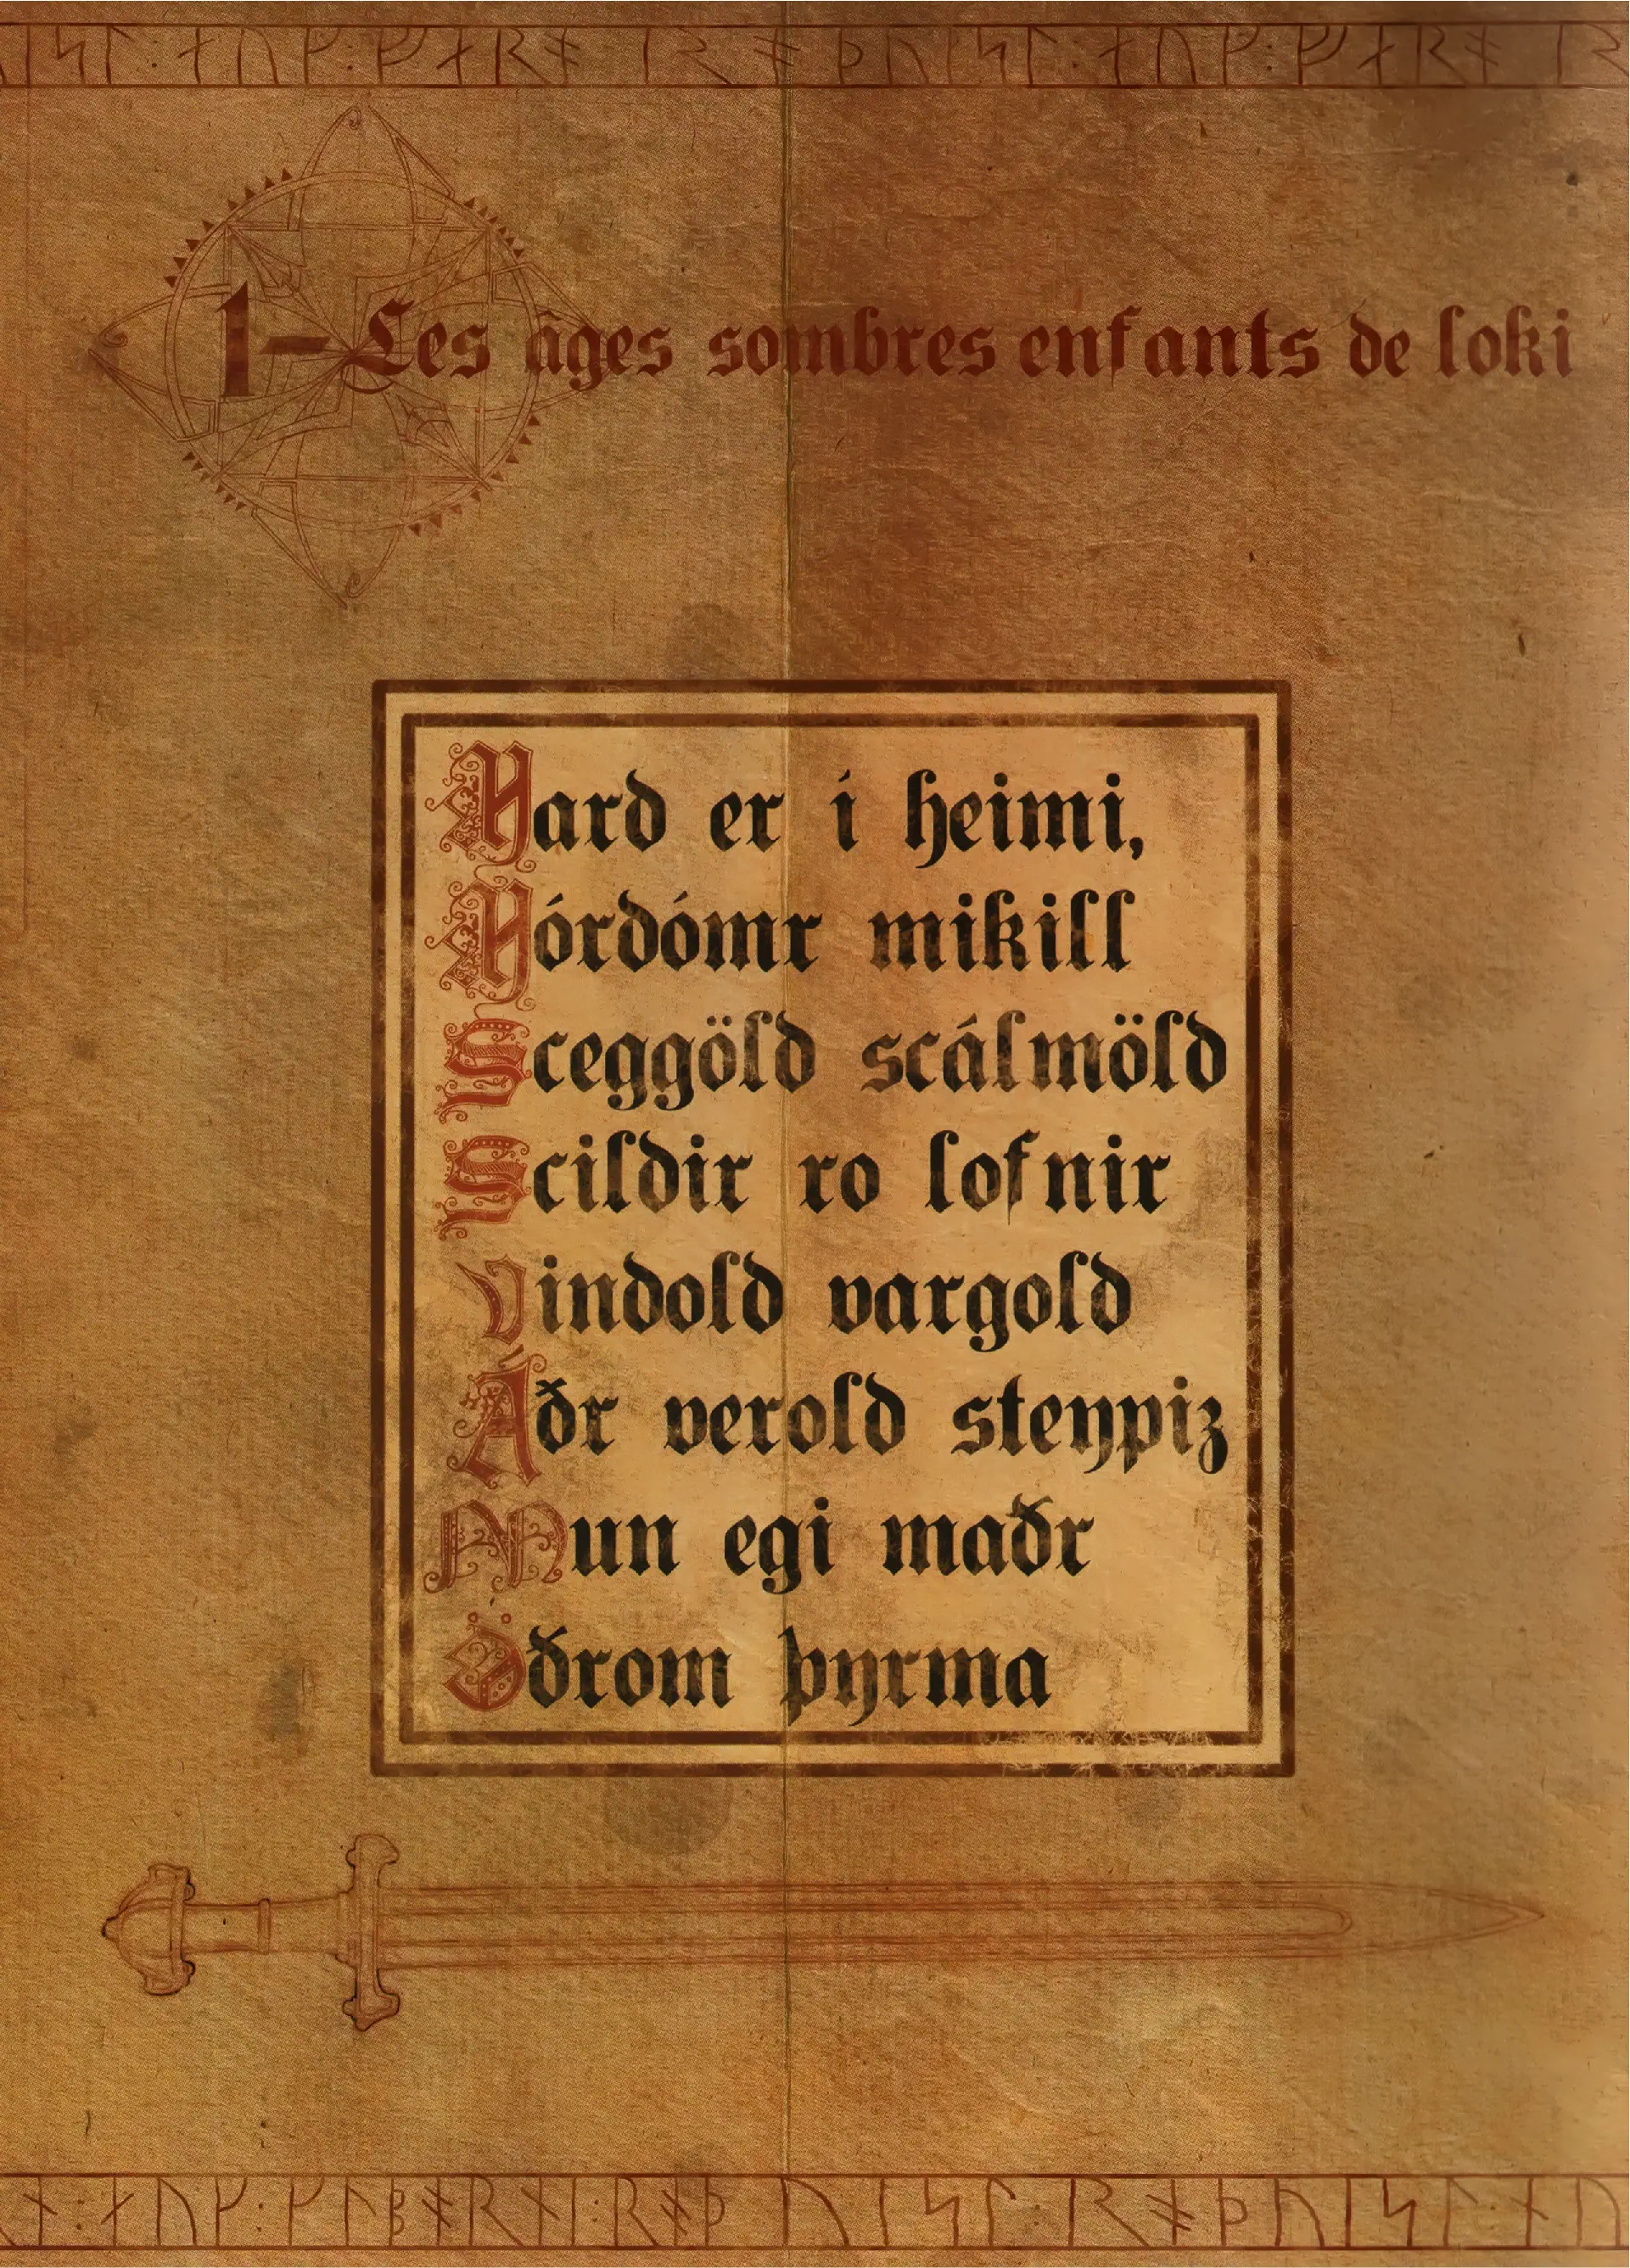 1-Les âges sombres enfants de loki
Hard er í heimi,
Hórdómr mikill
Sceggöld scálmöld
Scildir ro lofnir
vindold vargold
Áðr verold steypiz
Mun egi maðr
Öðrom þyrma